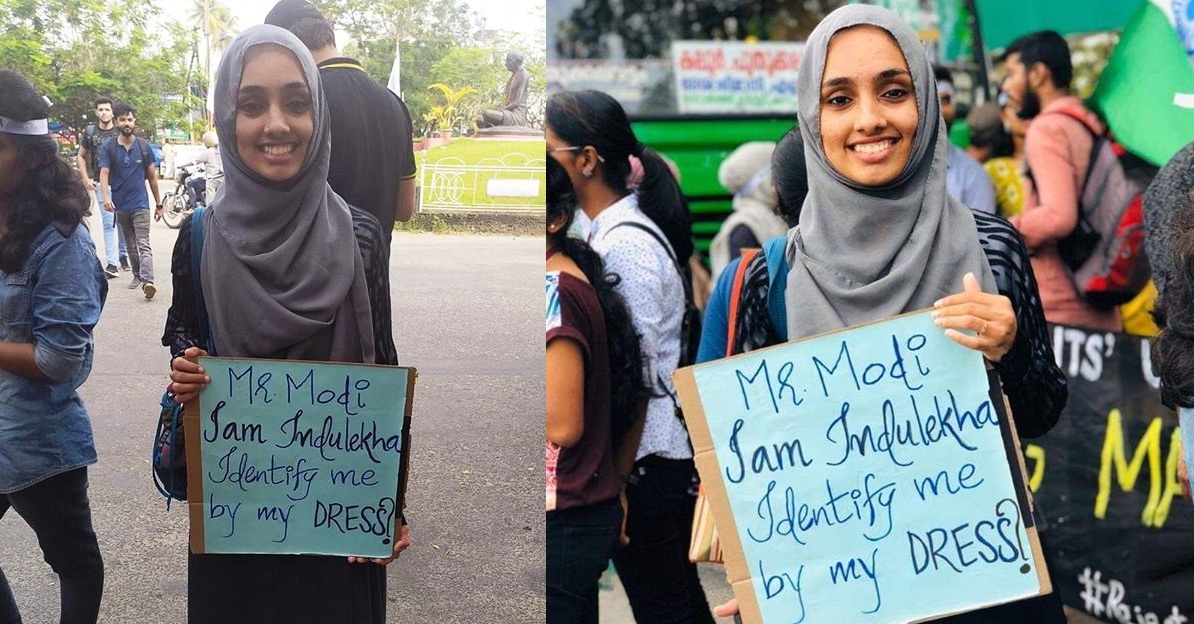 Mr. Modi
I am Indulekha
Identify me
by my DRESS?
കലൂർ, പുതുക്കല
Mr. Modi
I am Indulekha
Identify me
by my DRESS?
NTS'
MA
#Reject